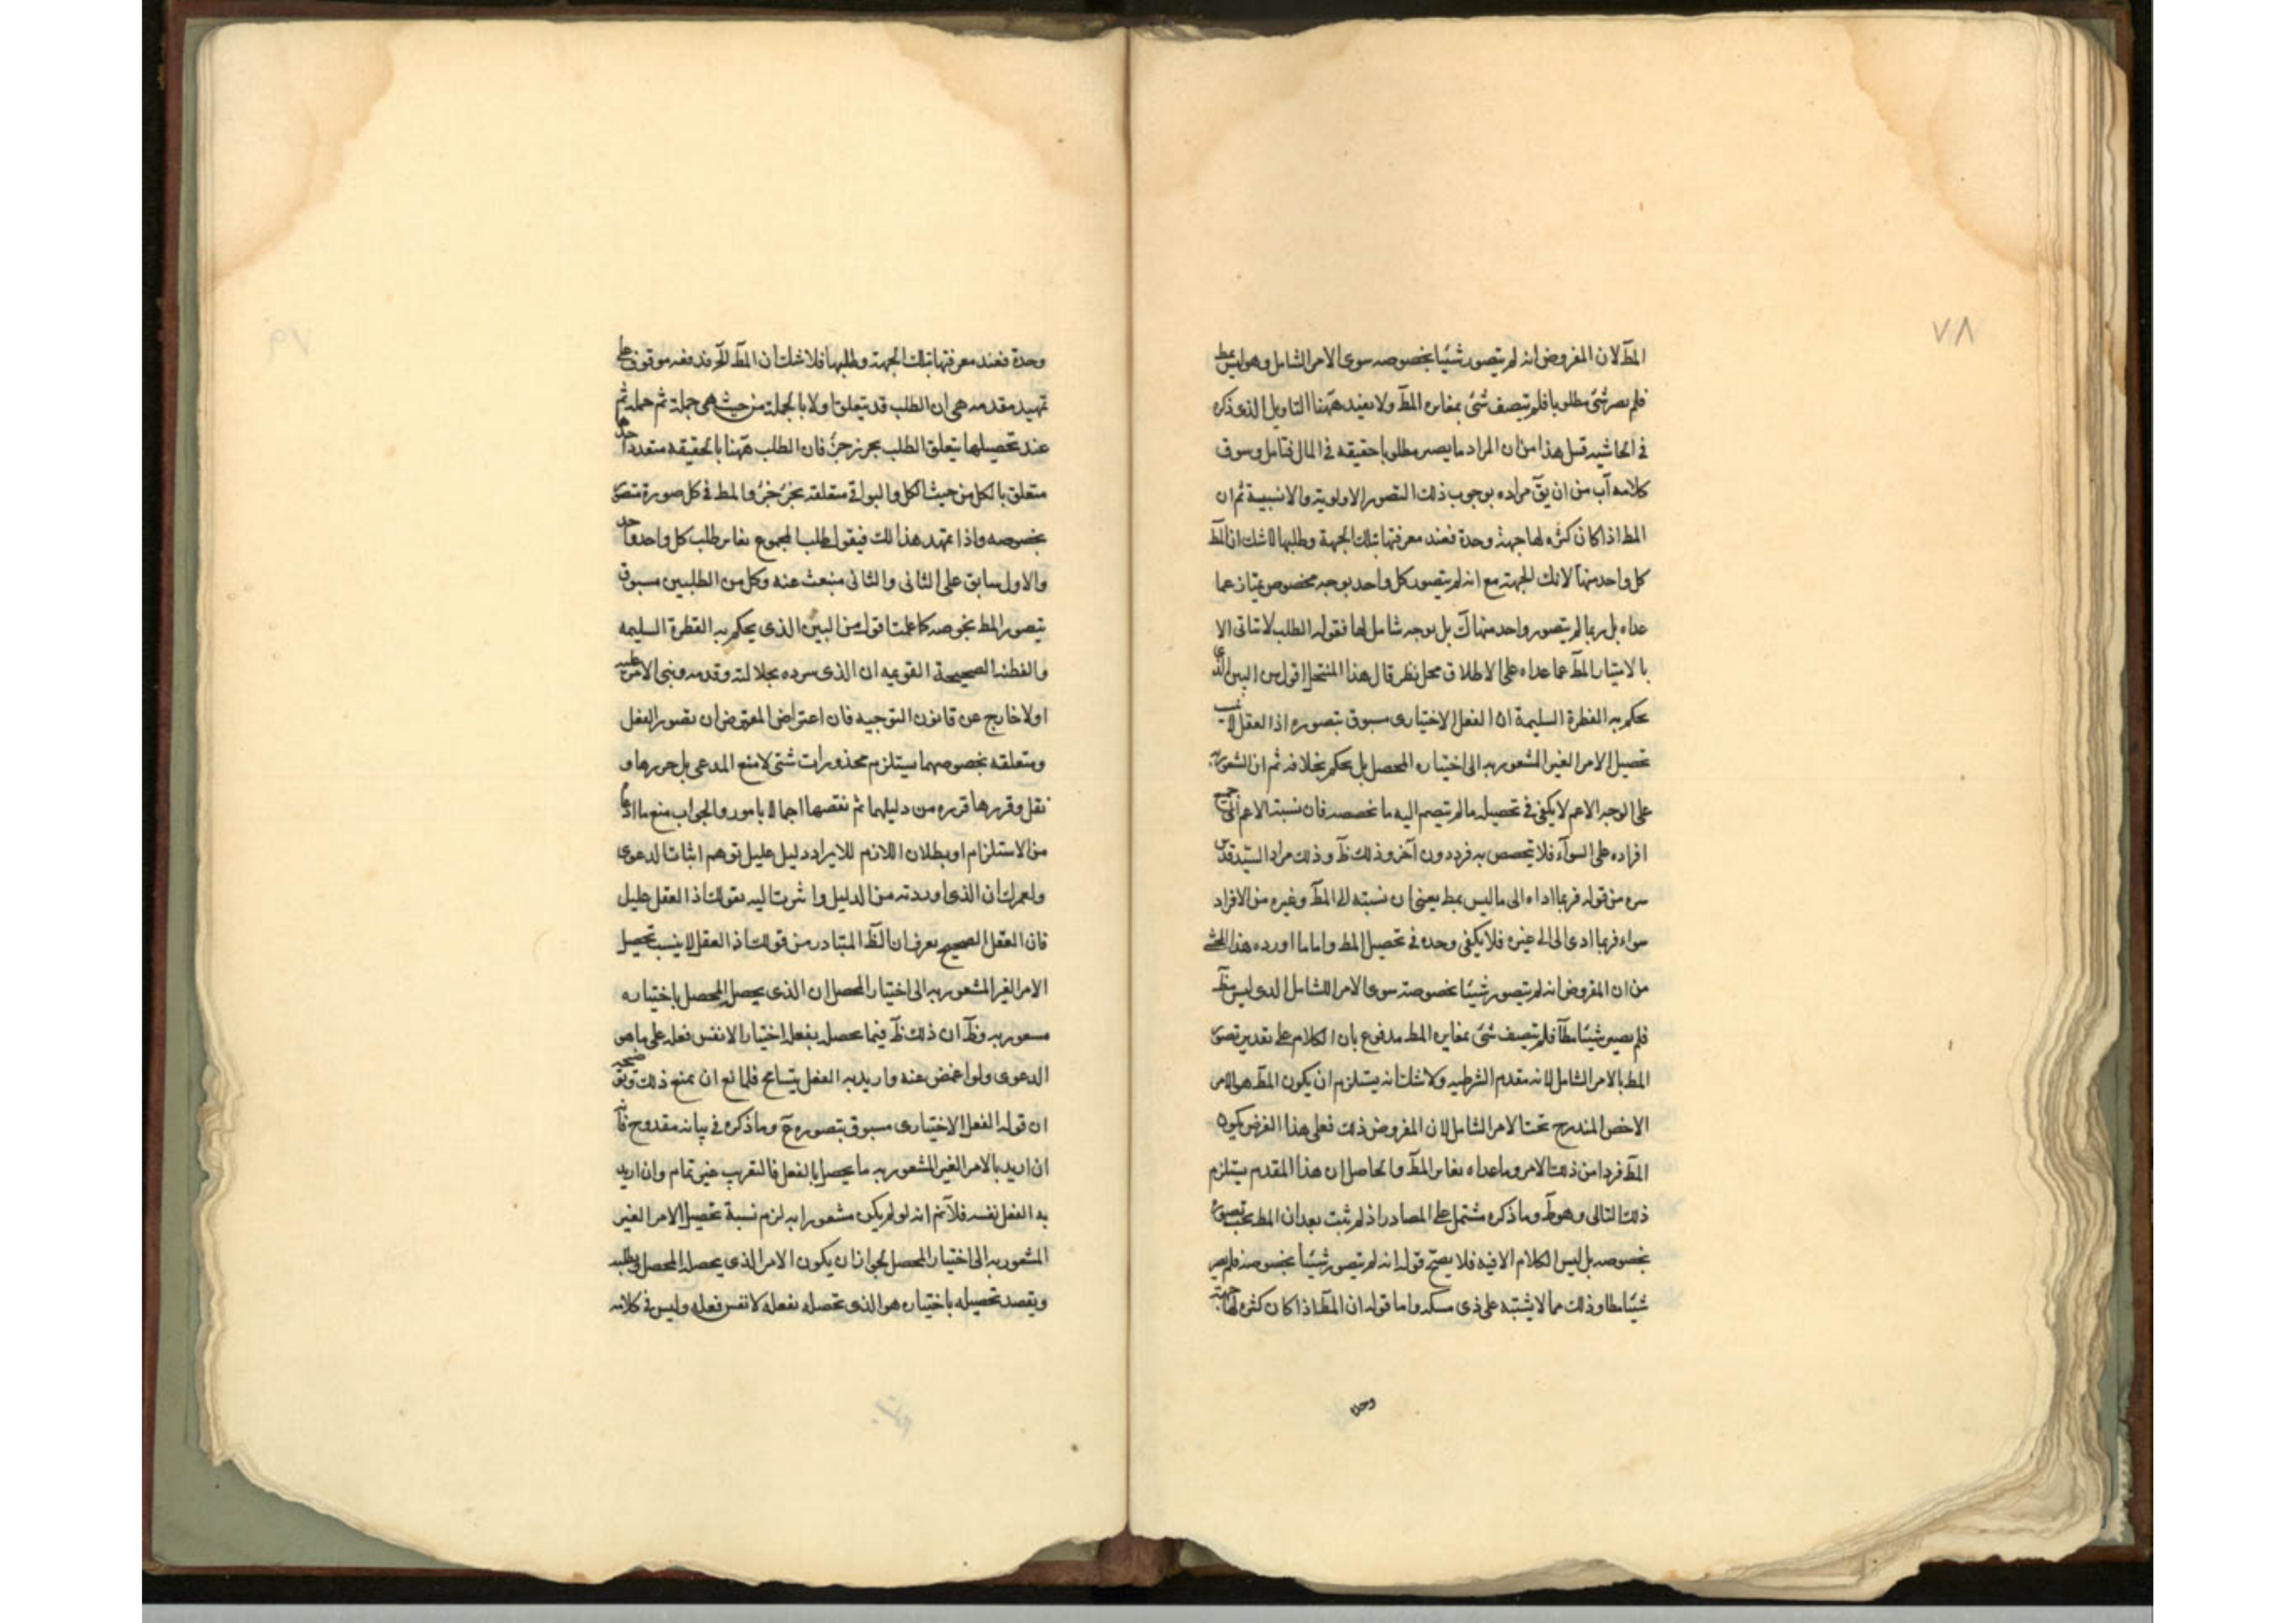 ٧٨
المط لان المفروض انه لم يتصور شيئا بخصوصه سوى الامر الشامل وهو ليس بمط
فلم يصر شئ مطلوبا فلم يتصف شئ بمغايره المط ولا يفيد ههنا التاويل الذى ذكره
فى الحاشيه قبل هذا من ان المراد ما يصير مطلوبا حقيقه فى المال فتامل وسوف
كلامه آب من ان يق مراده بوجوب ذلك التصور الاولوية والانسبية ثم ان
المط اذا كان كثره لها جهة وحدة فعند معرفتها بتلك الجهة وطلبها لا شك ان المط
كل واحد منها لا تلك الجهة مع انه لم يتصور كل واحد بوجه مخصوص يمتاز عما
عداه بل ربما لم يتصور واحد منها ك بل بوجه شامل لها فقوله الطلب لا يتاتى الا
بالامتياز المط عما عداه على الاطلاق محل نظر قال هذا المنتحل اقول من البين الذى
يحكم به الفطرة السليمة ان الفعل الاختيارى مسبوق بتصوره اذ العقل لا ينسب
تحصيل الامر الغير المشعور به الى اختياره المحصل بل يحكم بخلافه ثم ان الشعور به
على الوجه الاعم لا يكفى فى تحصيله ما لم ينضم اليه ما يخصصه فان نسبة الاعم الى جميع
افراده على السوآء فلا يتخصص به فرد دون آخر وذلك ظ وذلك مراد السيد قدس
سره من قوله فربما اداه الى ما ليس بمط يعنى ان نسبته الى المط وغيره من الافراد
سواء فربما ادى الى الى غيره فلا يكفى وحده فى تحصيل المط واما ما اورده هذا المحشى
من ان المفروض انه لم يتصور شيئا بخصوصه سوى الامر الشامل الذى ليس بمط
فلم يصير شيئا مطا فلم يتصف شئ بمغايره المط مدفوع بان الكلام على تقدير تصور
المط بالامر الشامل لانه مقدم الشرطيه ولا شك انه يستلزم ان يكون المط هو الامر
الاخص المندرج تحت الامر الشامل لان المفروض ذلك فعلى هذا الفرض يكون
المط فردا من ذلك الامر وما عداه يغاير المط والحاصل ان هذا المقدم يستلزم
ذلك التالى وهو ط وما ذكره مشتمل على المصادرا اذ لم يثبت بعد ان المط يجب تصوره
بخصوصه بل ليس الكلام الا فيه فلا يصح قوله انه لم يتصور شيئا بخصوصه فلم يصر
شيئا مطا وذلك مما لا يشتبه على ذى مسكه واما قوله ان المط اذا كان كثره لها جهة
وحدة
٧٩
وحدة فعند معرفتها بتلك الجهة وطلبها فلا شك ان المط الخ فدفعه موقوف على
تمهيد مقدمه هى ان الطلب قد يتعلق اولا بالجملة من حيث هى جملة ثم
عند تحصيلها يتعلق الطلب بجزء جزء فان الطلب ههنا بالحقيقه متعدد احدها
متعلق بالكل من حيث الكل والبواقى متعلقة بجزء جزء والمط فى كل صورة متصور
بخصوصه واذا تمهد هذا لك فيقول طلب المجموع يغاير طلب كل واحد واحد
والاول سابق على الثانى والثانى منبعث عنه وكل من الطلبين مسبوق
بتصور المط بخوصه كما علمت اقول من البين الذى يحكم به الفطرة السليمه
والفطنه الصحيحة القويمه ان الذى سرده بجلالته وقدمه وبنى الامر عليه
اولا خارج عن قانون التوجيه فان اعتراض المعترض ان تصور الفعل
ومتعلقه بخصوصهما يستلزم محذورات شتى لا منع المدعى بل حررها و
نقل وقررها قرره من دليلهما ثم نقضها اجمالا بامور والجواب منع ما ادعا
من الاستلزام او بطلان اللازم للايراد دليل عليل توهم اثبات الدعوى
ولعمرك ان الذى اوردته من الدليل واشرت اليه بقولك اذ العقل عليل
فان العقل الصحيح يعرف ان الظ المتبادر من قولك اذ العقل لا ينسب تحصيل
الامر الغير المشعور به الى اختيار المحصل ان الذى يحصل المحصل باختياره
مسعور به وظ ان ذلك ظ فيما يحصل بفعل اختيار الا نفس فعله على ما هو
الدعوى ولو اغمض عنه واريد به الفعل يتسامح فلمانع ان يمنع ذلك
ان قوله الفعل الاختيارى مسبوق بتصوره ح وما ذكره فى بيانه مقدوح فانه
ان اريد بالامر الغير المشعور به ما يحصل بالفعل فالتقريب غير تمام وان اريد
به الفعل نفسه فلا نم انه لو لم يكن مشعورا به لزم نسبة تحصيل الامر الغير
المشعور به الى اختيار المحصل لجواز ان يكون الامر الذى يحصله المحصل ويطلبه
ويقصد تحصيله باختياره هو الذى تحصله بفعله لا نفس فعله وليس فى كلامه